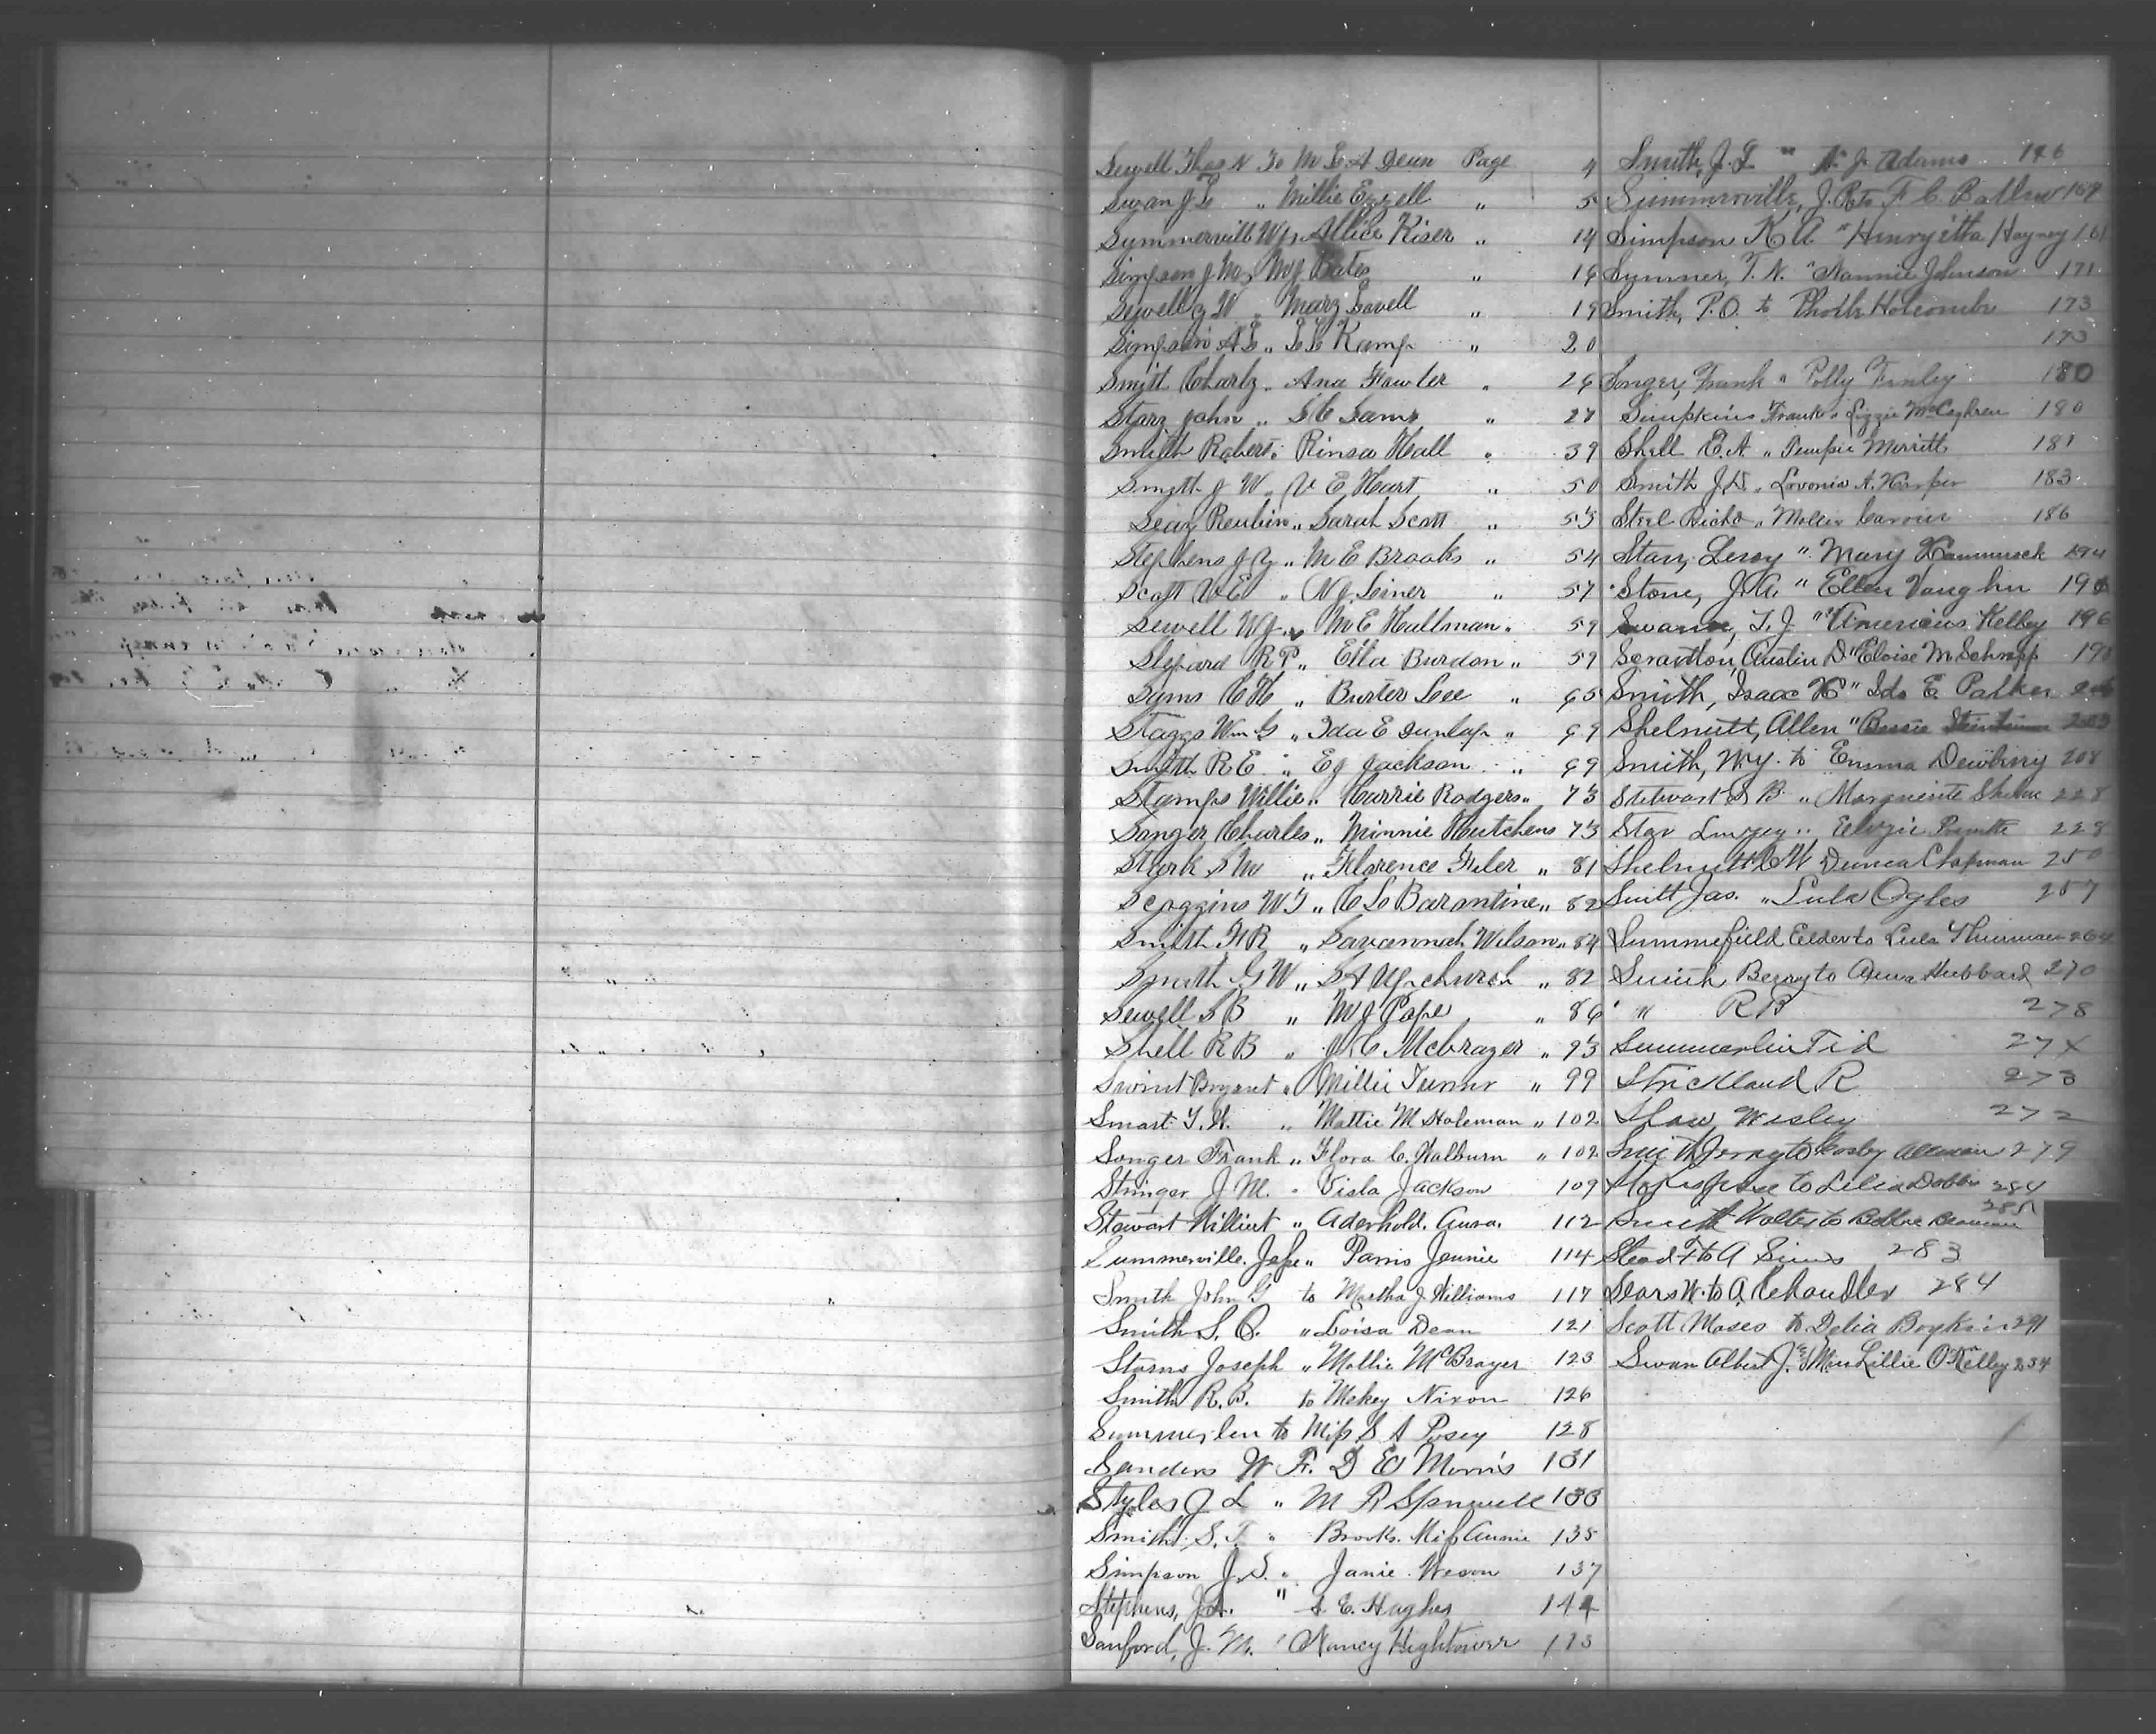 Sewell Thos N To M E A Dean Page 4
Swan J L " Millie Ezzell " 5
Summervill W J " Allice Kiser " 14
Simpson J M " M J Bates " 16
Sewell G W " Mary Savell " 19
Simpson A E " L E Kamp " 20
Smith Charly " Ana Fowler " 26
Starr John " S C Sams " 27
Smith Robert " Rinsa Hall " 39
Smyth J W " V E Hart " 50
Sear Reubin " Sarah Scott " 53
Stephens J Y " M E Brooks " 54
Scott W E " N J Seiner " 57
Sewell W J " M E Hallman " 59
Shepard R P " Ella Burdon " 59
Syms C H " Burter Lee " 65
Staggs Wm G " Ida E Dunlap " 69
Smith R E " E J Jackson " 69
Stamps Willie " Carrie Rodgers " 73
Songer Charles " Minnie Hutchens 73
Stork S M " Florence Filer " 81
Scoggins W T " C L Barantine " 82
Smith H R " Savannah Wilson " 84
Smith G W " S A Upchurch " 82
Sewell S B " M J Pope " 86
Shell R B " J C McBrayer " 93
Swint Bryant " Millie Turner " 99
Smart T. H. " Mattie M Holeman " 102
Songer Frank " Flora C. Walburn " 102
Stringer J. M. " Visla Jackson 109
Stewart Hilliert " Aderhold. Aura. 112
Summerville. Jape " Parris Jennie 114
Smith John G to Martha J Williams 117
Smith S. Q. " Loisa Dean 121
Starns Joseph " Mollie McBrayer 123
Smith R. B. to Mckey Nixon 126
Summerlin to Miss S A Posey 128
Sanders W F. D E Morris 131
Styles J L " M R Spruwell 133
Smith S. T. " Brooks. Miss Annie 135
Simpson J. S. " Janie Weson 137
Stephens, J A. " A. E. Hughes 144
Sanford, J. M. " Nancy Hightower 173
Smith, J. L " N. J. Adams 146
Summerville, J. R to F. C. Ballew 159
Simpson K A " Henryetta Hayney 161
Sumner, T. N. " Nannie Johnson 171
Smith, P. O. to Phoebe Holcombe 173
173
Songer, Frank " Polly Finley 180
Simpkins Frank " Lizzie McCaghren 180
Shell E. A. " Tempie Merritt 181
Smith J. D. " Lovonia A. Harper 183
Steel Richd " Mollie Carrier 186
Starr, Leroy " Mary Hammock 194
Stone, J. A. " Ellen Vaughn 19
Swann, T. J " Americus Kelley 196
Scraitton, Austin D " Eloise M Schnapp 19
Smith, Isaac H " Ida E. Parker
Shelnutt, Allen " Bessie 203
Smith, W. Y. to Emma Dewberry 208
Stewart S B " Marguerite 228
Star " 228
Shelnutt C W Dunca Chapman 250
Smith Jas. " Lula Ogles 257
Summefield Elder to Lula Thurman 264
Smith Berry to Anna Hubbard 270
" " R B 278
Summerlin Tid 27
Strickland R 273
Shaw Wesley 272
Smith Jerry to Allman 279
to Lilia Dobbs 284
Smith Walter to 281
Stead F to A Sims 283
Sears W. to A. Chandler 284
Scott Moses to Delia Boykin 291
Swan Albert J. & Miss Lillie O'Kelley 234